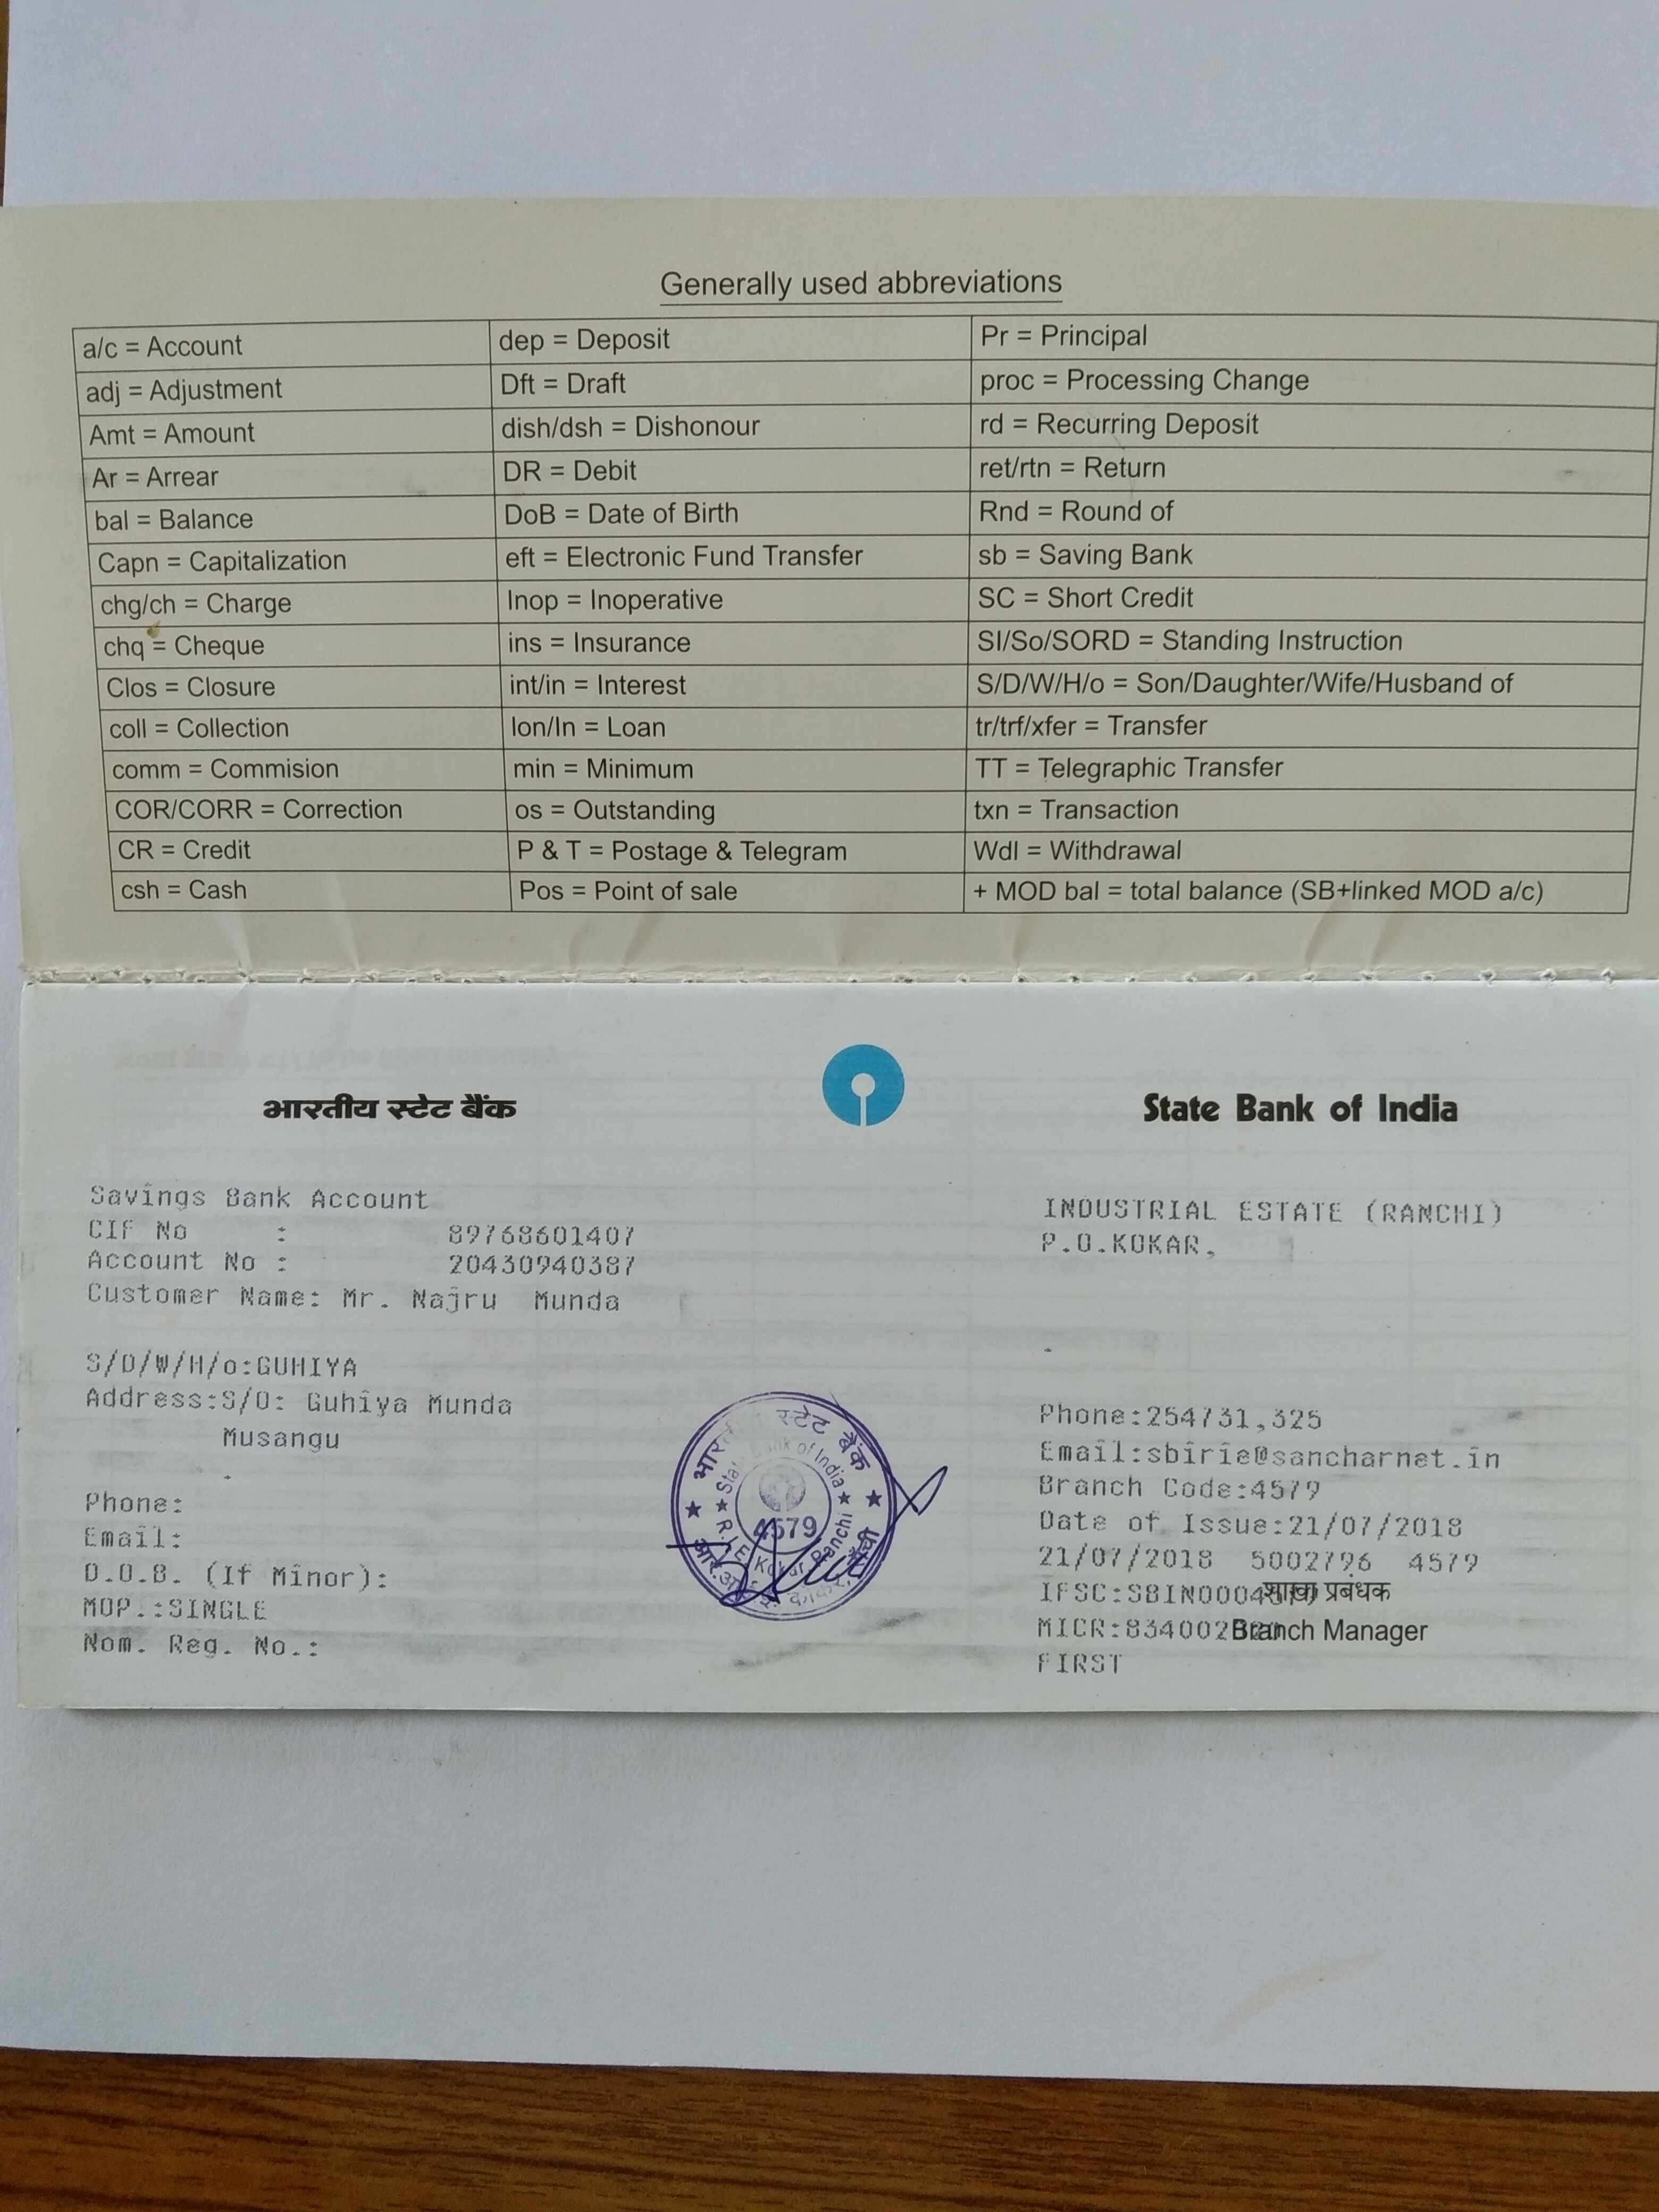 Generally used abbreviations
a/c = Account dep = Deposit Pr = Principal
adj = Adjustment Dft = Draft proc = Processing Change
Amt = Amount dish/dsh = Dishonour rd = Recurring Deposit
Ar = Arrear DR = Debit ret/rtn = Return
bal = Balance DoB = Date of Birth Rnd = Round of
Capn = Capitalization eft = Electronic Fund Transfer sb = Saving Bank
chg/ch = Charge Inop = Inoperative SC = Short Credit
chq = Cheque ins = Insurance SI/So/SORD = Standing Instruction
Clos = Closure int/in = Interest S/D/W/H/o = Son/Daughter/Wife/Husband of
coll = Collection lon/ln = Loan tr/trf/xfer = Transfer
comm = Commision min = Minimum TT = Telegraphic Transfer
COR/CORR = Correction os = Outstanding txn = Transaction
CR = Credit P & T = Postage & Telegram Wdl = Withdrawal
csh = Cash Pos = Point of sale + MOD bal = total balance (SB+linked MOD a/c)
भारतीय स्टेट बैंक State Bank of India
Savings Bank Account
CIF No : 89768601407
Account No : 20430940387
Customer Name: Mr. Najru Munda
S/D/W/H/o:GUHIYA
Address:S/O: Guhiya Munda
Musangu
.
Phone:
Email:
D.O.B. (If Minor):
MOP.:SINGLE
Nom. Reg. No.:
स्टेट बैंक
of India
4579
Kokar Ranchi
INDUSTRIAL ESTATE (RANCHI)
P.O.KOKAR,
Phone:254731,325
Email:sbirie@sancharnet.in
Branch Code:4579
Date of Issue:21/07/2018
21/07/2018 5002796 4579
IFSC: शाखा प्रबंधक
MICR: Branch Manager
FIRST